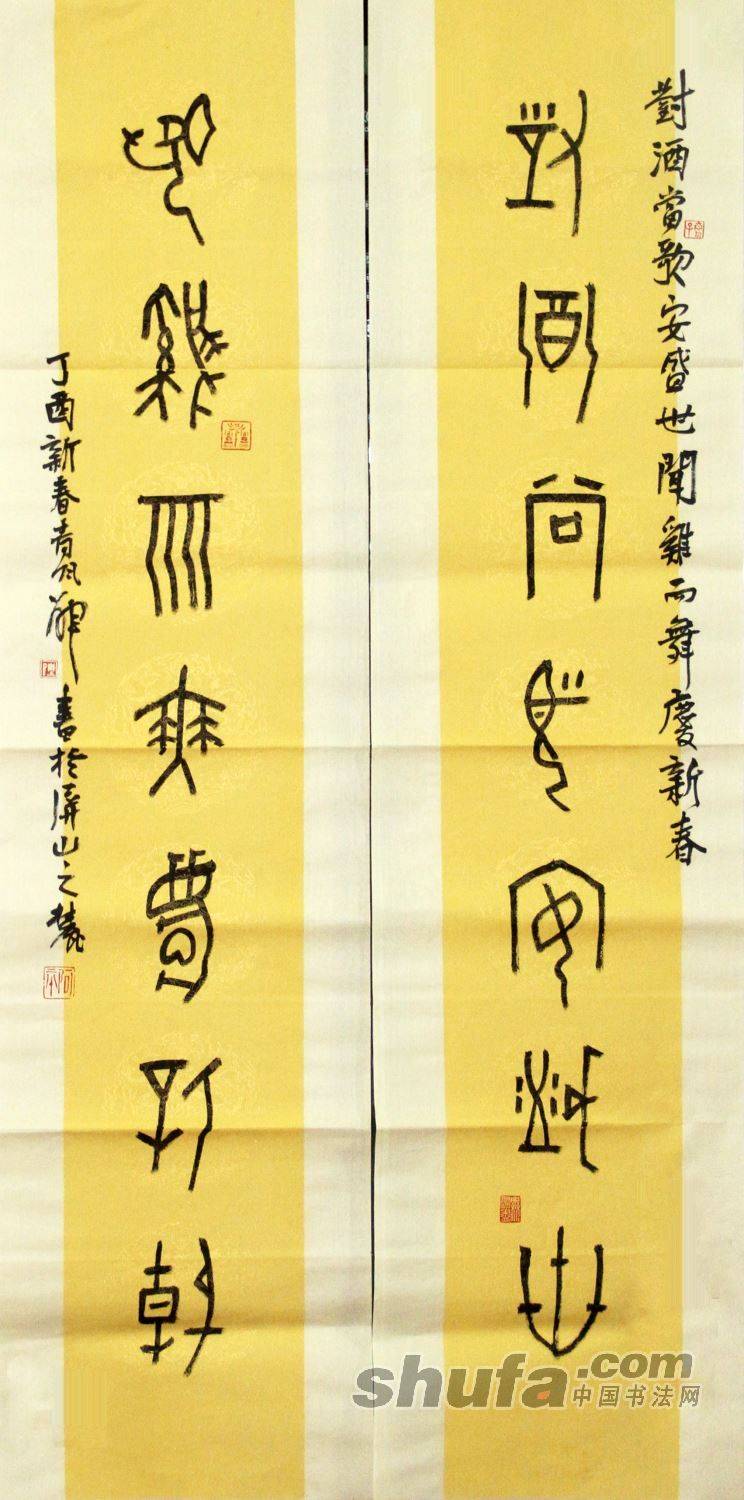 對酒當歌安盛世聞雞而舞慶新春
對酒當歌安盛世
聞雞而舞慶新春
丁酉新春書於屏山之麓
shufa.com
中国书法网